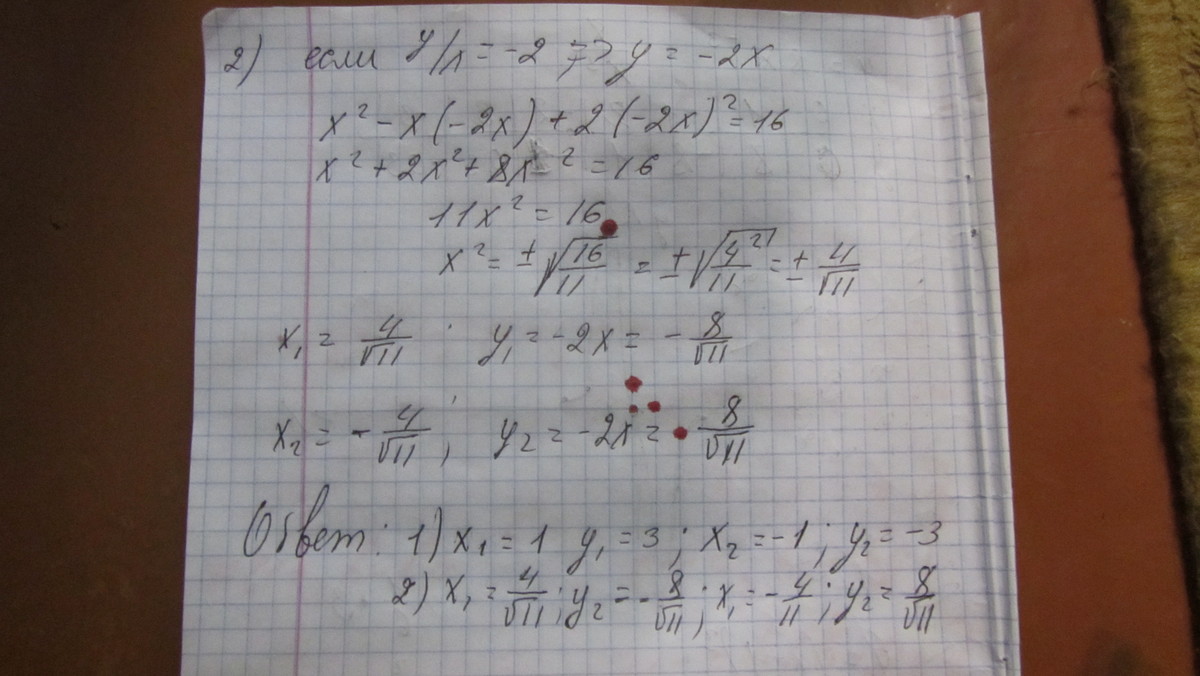 2) если y/x = -2 => y = -2x
x² - x(-2x) + 2(-2x)² = 16
x² + 2x² + 8x² = 16
11x² = 16
x² = ±√(16/11) = ±√(4²/11) = ± 4/√11
x₁ = 4/√11 ; y₁ = -2x = - 8/√11
x₂ = - 4/√11 ; y₂ = -2x = 8/√11
Ответ: 1) x₁ = 1 y₁ = 3 ; x₂ = -1 ; y₂ = -3
2) x₁ = 4/√11 ; y₂ = - 8/√11 ; x₁ = - 4/11 ; y₂ = 8/√11